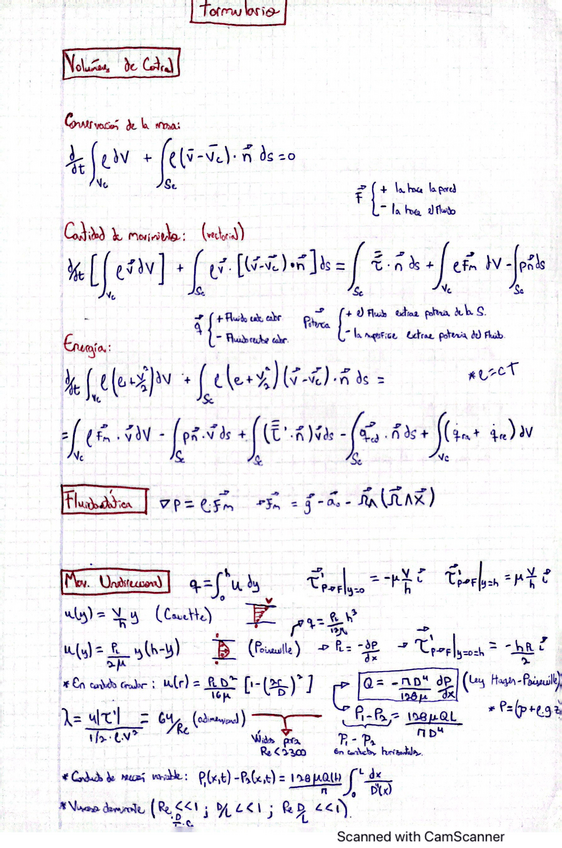 Formulario
Volúmenes de Control
Conservación de la masa:
d/dt ∫_Vc ρ dV + ∫_Sc ρ(v̄ - v̄c)·n⃗ ds = 0
F⃗ { + la hace la pared
- la hace el fluido
Cantidad de movimiento: (vectorial)
d/dt [∫_Vc ρv⃗ dV] + ∫_Sc ρv⃗·[(v⃗-v⃗c)·n⃗] ds = ∫_Sc τ̿·n⃗ ds + ∫_Vc ρf⃗m dV - ∫_Sc pn⃗ ds
q⃗ { + Fluido cede calor
- Fluido recibe calor
Potencia { + el Fluido extrae potencia de la S.
- la superficie extrae potencia del Fluido.
Energía:
d/dt ∫_Vc ρ(e+v²/2) dV + ∫_Sc ρ(e+v²/2)(v⃗-v⃗c)·n⃗ ds =
*e=cT
= ∫_Vc ρf⃗m·v⃗ dV - ∫_Sc pn⃗·v⃗ ds + ∫_Sc (τ̿'·n⃗)v⃗ ds - ∫_Sc q⃗cd·n⃗ ds + ∫_Vc (q̇ra + q̇re) dV
Fluidostática ∇P = ρ·f⃗m → f⃗m = g⃗ - a⃗o - Ω⃗∧(Ω⃗∧X⃗)
Mov. Unidireccional q = ∫₀ʰ u dy τ⃗'p→F|y=0 = -μ V/h i⃗ τ⃗'p→F|y=h = μ V/h i⃗
u(y) = V/h y (Couette)
q = Pl/12μ h³
u(y) = Pl/2μ y(h-y) (Poiseuille) → Pl = -∂P/∂x → τ⃗'p→F|y=0=h = -hPl/2 i⃗
* En conducto circular: u(r) = PlD²/16μ [1-(2r/D)²] Q = -πD⁴/128μ dP/dx (Ley Hagen-Poiseuille)
P₁-P₂ = 128μQL/πD⁴
* P=(p+ρgz
λ = 4|τ'|/1/2·ρ·V² = 64/Re (adimensional)
Válidos para
Re<2300
P₁ - P₂
en conductos horizontales.
* Conducto de sección variable: P₁(x,t)-P₂(x,t) = 128μQ(t)/π ∫₀ᴸ dx/D⁴(x)
* Viscoso dominante (Re D/T.C. <<1 ; D/L <<1 ; Re D/L <<1).
Scanned with CamScanner